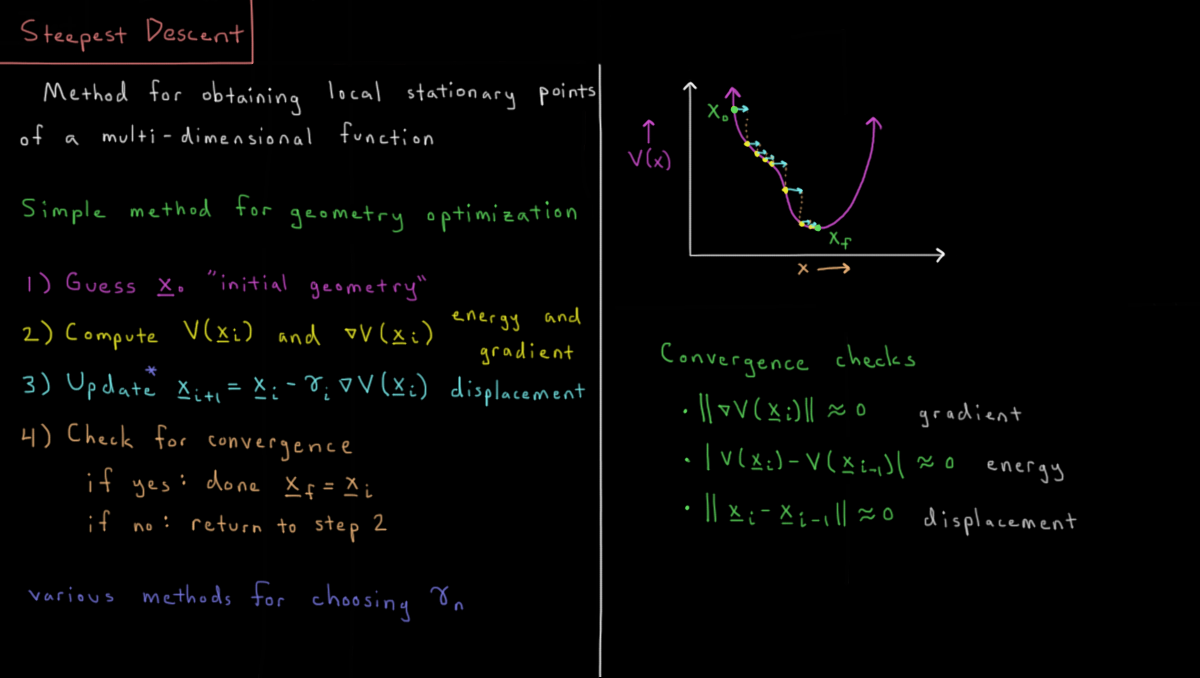 Steepest Descent
Method for obtaining local stationary points
of a multi-dimensional function
Simple method for geometry optimization
1) Guess x₀ "initial geometry"
2) Compute V(xᵢ) and ∇V(xᵢ) energy and
gradient
3) Update* xᵢ₊₁ = xᵢ - γᵢ ∇V(xᵢ) displacement
4) Check for convergence
if yes: done x_f = xᵢ
if no: return to step 2
various methods for choosing γₙ
V(x)
X₀
X_f
x
Convergence checks
• ||∇V(xᵢ)|| ≈ 0 gradient
• |V(xᵢ) - V(xᵢ₋₁)| ≈ 0 energy
• ||xᵢ - xᵢ₋₁|| ≈ 0 displacement